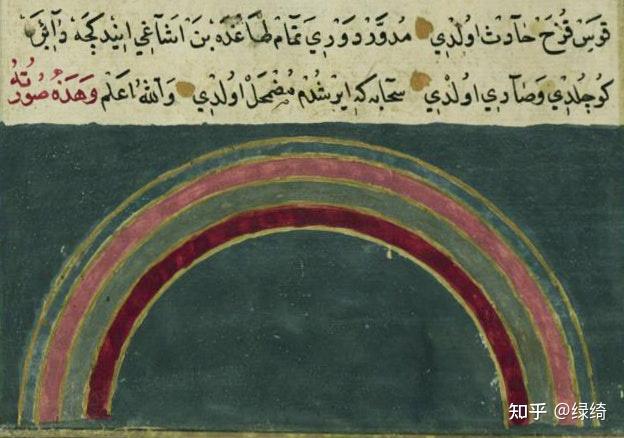 قوس قزح حادث اولدي مدوّر دوري تمام طاغده بن اشاغي ايندكچه دآئره
كوچلدي وصآري اولدي سحابه كه ايرشدم مضمحل اولدي والله اعلم وهذه صورته
知乎 @绿绮